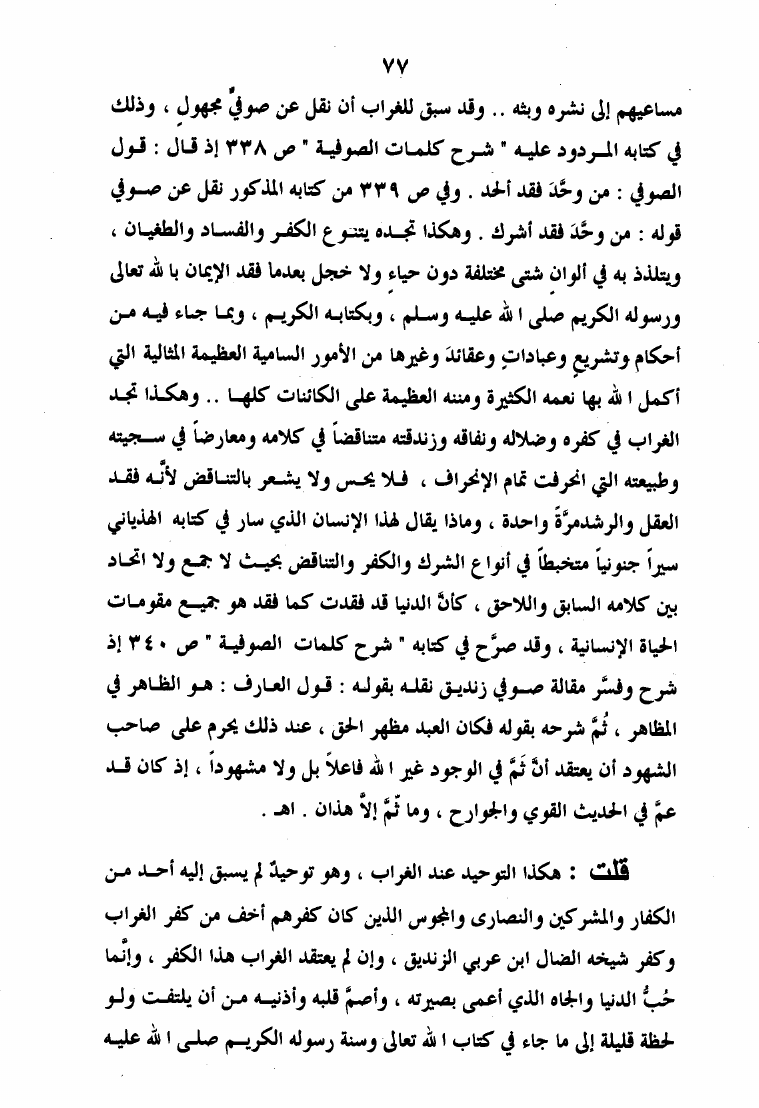 ٧٧
مساعيهم إلى نشره وبثه .. وقد سبق للغراب أن نقل عن صوفيٍّ مجهولٍ ، وذلك
في كتابه المـردود عليـه " شـرح كلمـات الصوفيـة " ص ٣٣٨ إذ قـال : قـول
الصوفي : من وحَّدَ فقد ألحد . وفي ص ٣٣٩ من كتابه المذكور نقل عن صـوفي
قوله : من وحَّدَ فقد أشرك . وهكذا تجـده يتنـوع الكفـر والفساد والطغيـان ،
ويتلذذ به في ألوانٍ شتى مختلفة دون حياءٍ ولا خجل بعدما فقد الإيمان با لله تعالى
ورسوله الكريم صلى ا لله عليـه وسـلم ، وبكتابـه الكريـم ، وبمـا جـاء فيـه مـن
أحكام وتشريعٍ وعباداتٍ وعقائدَ وغيرها من الأمور السامية العظيمة المثالية التي
أكمل ا لله بها نعمه الكثيرة ومننه العظيمة على الكائنات كلهـا .. وهكـذا تجـد
الغراب في كفره وضلاله ونفاقه وزندقته متناقضاً في كلامه ومعارضاً في سـجيته
وطبيعته التي انحرفت تمام الإنحراف ، فـلا يحـس ولا يشـعر بالتنـاقض لأنَّـه فقـد
العقل والرشدمرَّةً واحدة ، وماذا يقال لهذا الإنسان الذي سار في كتابه الهذياني
سيراً جنونياً متخبطاً في أنواع الشرك والكفر والتناقض بحيـث لا جمـع ولا اتحـاد
بين كلامه السابق واللاحق ، كأنَّ الدنيا قد فقدت كما فقد هو جميـع مقومـات
الحياة الإنسانية ، وقد صرَّح في كتابه " شرح كلمات الصوفيـة " ص ٣٤٠ إذ
شرح وفسَّر مقالة صـوفي زنديـق نقلـه بقولـه : قـول العـارف : هـو الظـاهر في
المظاهر ، ثُمَّ شرحه بقوله فكان العبد مظهر الحق ، عند ذلك يحرم على صاحب
الشهود أن يعتقد أنَّ ثَمَّ في الوجود غير ا لله فاعلاً بل ولا مشهوداً ، إذ كان قـد
عمَّ في الحديث القوي والجوارح ، وما ثَمَّ إلاَّ هذان . اهـ .
قلت : هكذا التوحيد عند الغراب ، وهو توحيدٌ لم يسبق إليه أحـد مـن
الكفار والمشركين والنصارى والمجوس الذين كان كفرهم أخف من كفر الغراب
وكفر شيخه الضال ابن عربي الزنديق ، وإن لم يعتقد الغراب هذا الكفر ، وإنَّما
حُبُّ الدنيا والجاه الذي أعمى بصيرته ، وأصمَّ قلبه وأذنيـه مـن أن يلتفـت ولـو
لحظة قليلة إلى ما جاء في كتاب ا لله تعالى وسنة رسوله الكريـم صلـى ا لله عليـه